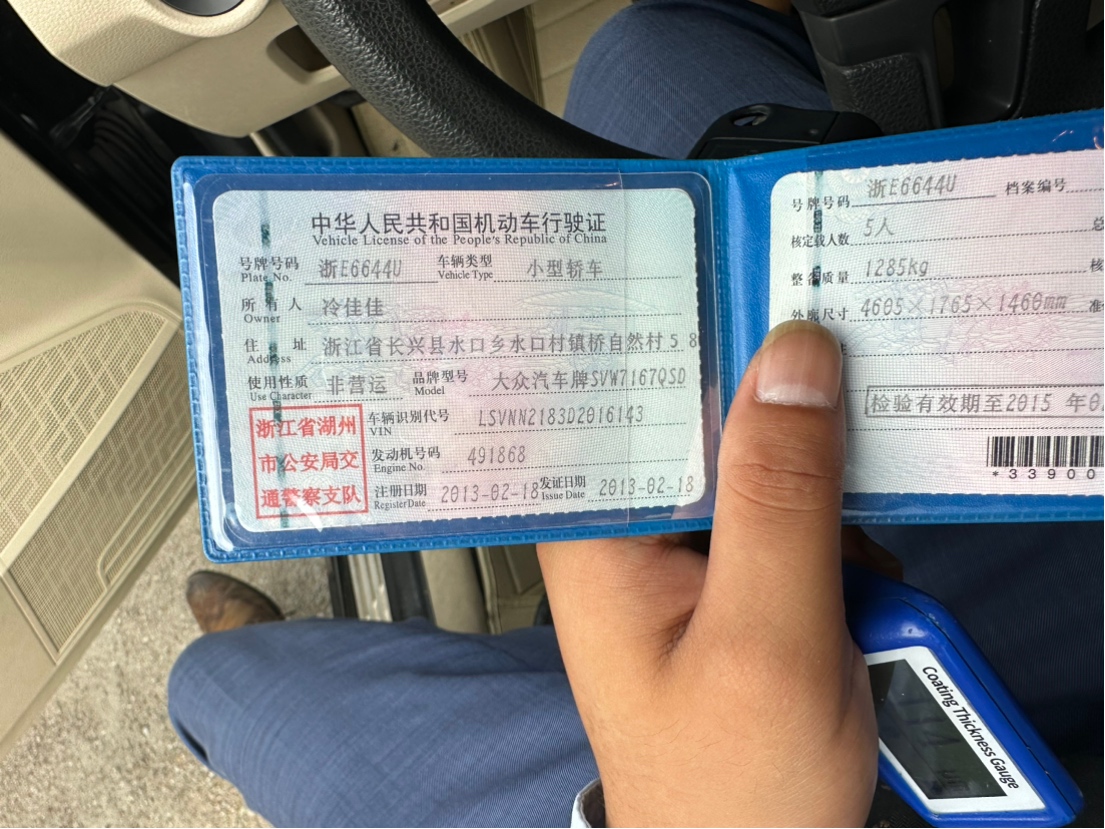 中华人民共和国机动车行驶证
Vehicle License of the People's Republic of China
号牌号码 浙E6644U 车辆类型 小型轿车
Plate No. Vehicle Type
所有人 冷佳佳
Owner
住址 浙江省长兴县水口乡水口村镇桥自然村58
Address
使用性质 非营运 品牌型号 大众汽车牌SVW7167QSD
Use Character Model
浙江省湖州
市公安局交
通警察支队
车辆识别代号 LSVNN2183D2016143
VIN
发动机号码 491868
Engine No.
注册日期 2013-02-18 发证日期 2013-02-18
Register Date Issue Date
号牌号码 浙E6644U 档案编号
核定载人数 5人 总
整备质量 1285kg 核
外廓尺寸 4605×1765×1460mm 准
检验有效期至2015 年0
*33900
Coating Thickness Gauge